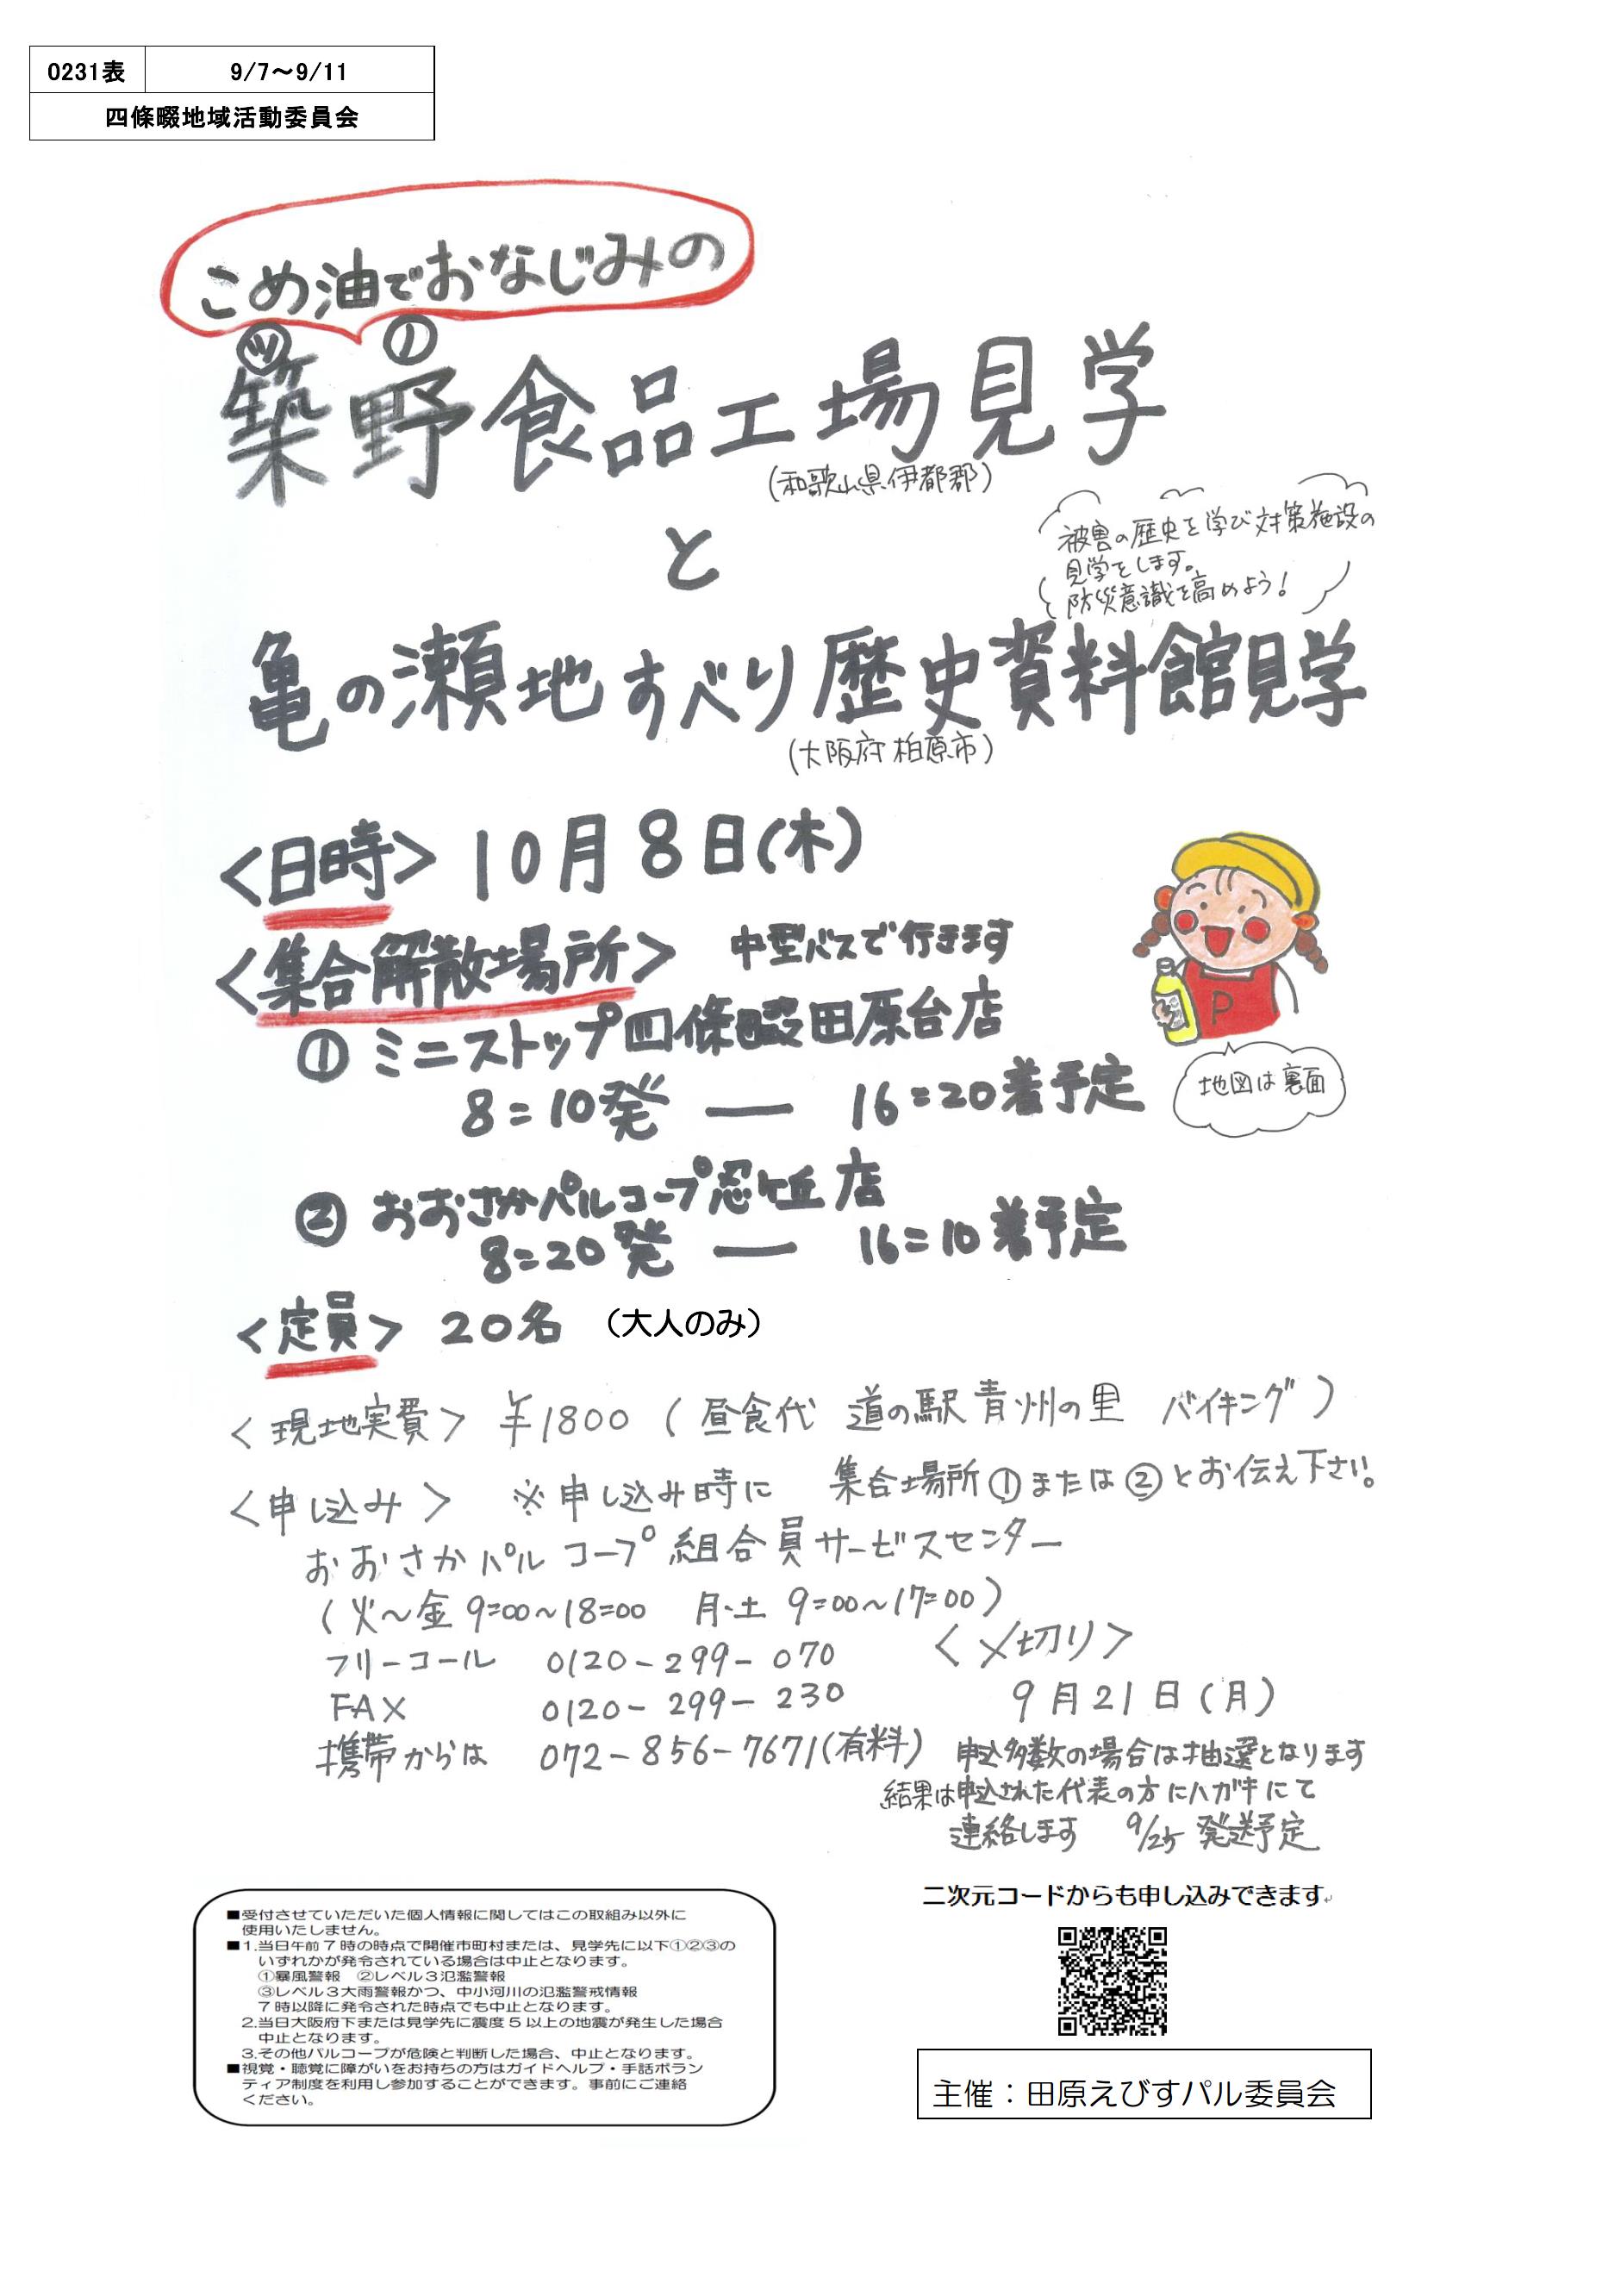 0231表 9/7～9/11
四條畷地域活動委員会
こめ油でおなじみの
ツ ノ
築野食品工場見学
(和歌山県伊都郡)
と
被害の歴史を学び対策施設の
見学をします。
防災意識を高めよう！
亀の瀬地すべり歴史資料館見学
(大阪府柏原市)
<日時> 10月8日(木)
<集合解散場所> 中型バスで行きます
① ミニストップ四條畷田原台店
8:10発 — 16:20着予定
地図は裏面
② おおさかパルコープ忍ヶ丘店
8:20発 — 16:10着予定
<定員> 20名 （大人のみ）
<現地実費> ¥1800 (昼食代 道の駅青洲の里 バイキング)
<申し込み> ※申し込み時に 集合場所①または②とお伝え下さい。
おおさかパルコープ組合員サービスセンター
(火～金 9:00～18:00 月・土 9:00～17:00)
フリーコール 0120-299-070
FAX 0120-299-230
携帯からは 072-856-7671(有料)
<〆切り>
9月21日(月)
申込多数の場合は抽選となります
結果は申込された代表の方にハガキにて
連絡します 9/25 発送予定
■受付させていただいた個人情報に関してはこの取組み以外に
使用いたしません。
■1.当日午前７時の時点で開催市町村または、見学先に以下①②③の
いずれかが発令されている場合は中止となります。
①暴風警報 ②レベル３氾濫警報
③レベル３大雨警報かつ、中小河川の氾濫警戒情報
７時以降に発令された時点でも中止となります。
2.当日大阪府下または見学先に震度５以上の地震が発生した場合
中止となります。
3.その他パルコープが危険と判断した場合、中止となります。
■視覚・聴覚に障がいをお持ちの方はガイドヘルプ・手話ボラン
ティア制度を利用し参加することができます。事前にご連絡
ください。
二次元コードからも申し込みできます
主催：田原えびすパル委員会
P